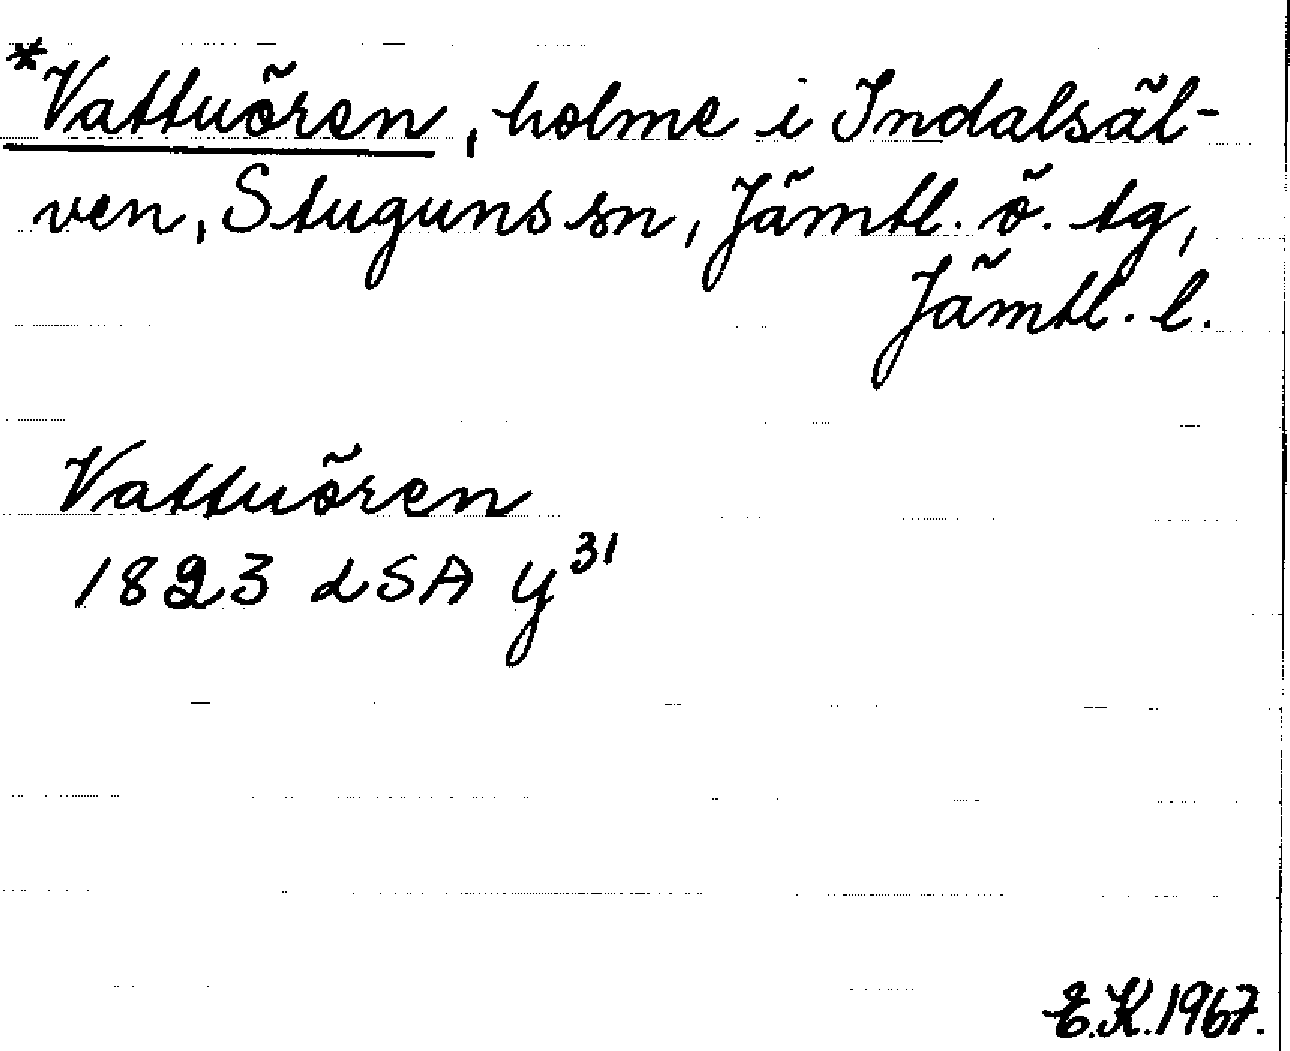 *Vattuören, holme i Indalsäl-
ven, Stuguns sn, Jämtl. ö. tg,
Jämtl. l.
Vattuören
1823 LSA Y³¹
E.K.1967.